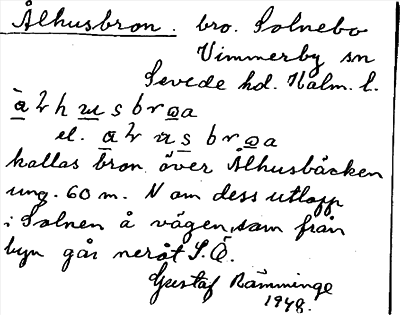 Ålhusbron. bro. Solnebo
Vimmerby sn
Sevede hd. Kalm. l.
el.
kallas bron över Ålhusbäcken
ung. 60 m. N om dess utlopp
i Solnen å vägen, som från
byn går neråt S.Ö.
Gustaf Rämminge
1948.